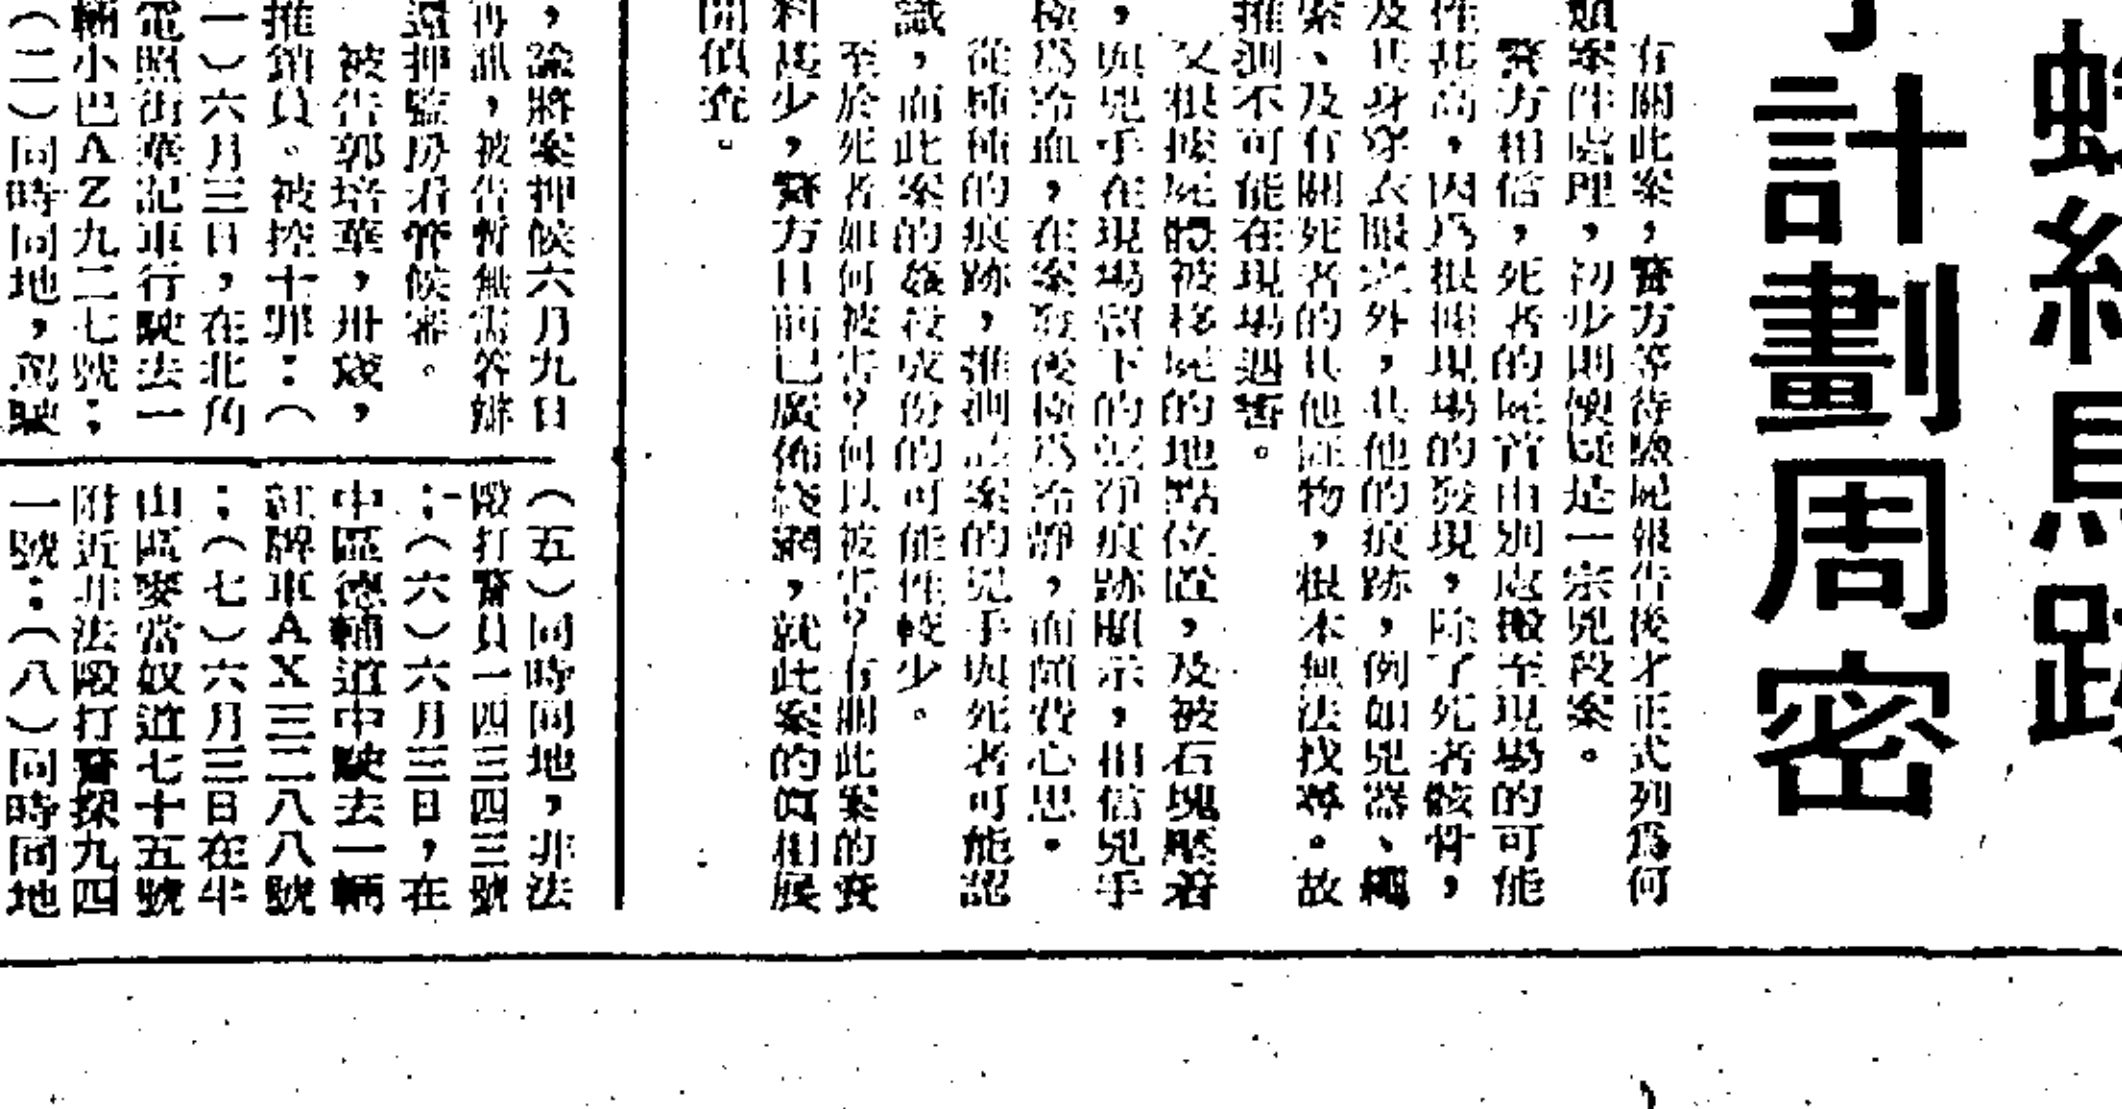 蛛絲馬跡
計劃周密
有關此案，警方等待驗屍報告後才正式列為何
類案件處理，初步則懷疑是一宗兇殺案。
警方相信，死者的屍首由別處搬至現場的可能
性甚高，因乃根據現場的發現，除了死者骸骨，
及其身穿衣服之外，其他的痕跡，例如兇器、繩
索、及有關死者的其他証物，根本無法找尋。故
推測不可能在現場遇害。
又根據屍體被移屍的地點位置，及被石塊壓着
，與兇手在現場留下的乾淨痕跡顯示，相信兇手
極為冷血，在案發後極為冷靜，而頗費心思。
從種種的痕跡，推測此案的兇手與死者可能認
識，而此案的姦殺成份的可能性較少。
至於死者如何被害？何以被害？有關此案的資
料甚少，警方目前已廣佈綫網，就此案的真相展
開偵查。
，諭將案押候六月九日
再訊，被告暫無需答辯
還押監房看管候審。
被告郭培華，卅歲，
推銷員。被控十罪：（
一）六月三日，在北角
電照街華記車行駛去一
輛小巴ＡＺ九二七號；
（二）同時同地，駕駛
（五）同時同地，非法
毆打警員一四三四三號
；（六）六月三日，在
中區德輔道中駛去一輛
紅牌車ＡＸ三二八八號
；（七）六月三日在半
山區麥當奴道七十五號
附近非法毆打警探九四
一號；（八）同時同地